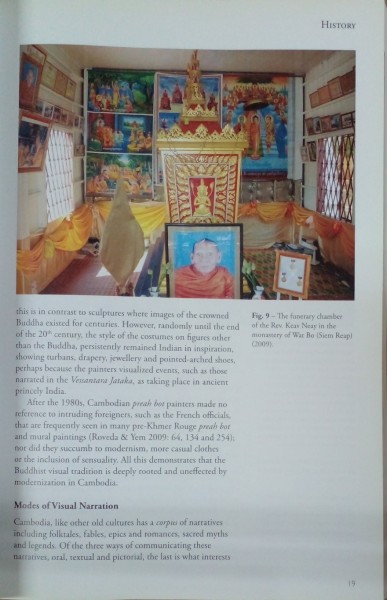 HISTORY
this is in contrast to sculptures where images of the crowned
Buddha existed for centuries. However, randomly until the end
of the 20th century, the style of the costumes on figures other
than the Buddha, persistently remained Indian in inspiration,
showing turbans, drapery, jewellery and pointed-arched shoes,
perhaps because the painters visualized events, such as those
narrated in the Vessantara Jataka, as taking place in ancient
princely India.
After the 1980s, Cambodian preah bot painters made no
reference to intruding foreigners, such as the French officials,
that are frequently seen in many pre-Khmer Rouge preah bot
and mural paintings (Roveda & Yem 2009: 64, 134 and 254);
nor did they succumb to modernism, more casual clothes
or the inclusion of sensuality. All this demonstrates that the
Buddhist visual tradition is deeply rooted and uneffected by
modernization in Cambodia.
Modes of Visual Narration
Cambodia, like other old cultures has a corpus of narratives
including folktales, fables, epics and romances, sacred myths
and legends. Of the three ways of communicating these
narratives, oral, textual and pictorial, the last is what interests
Fig. 9 – The funerary chamber
of the Rev. Keav Neay in the
monastery of Wat Bo (Siem Reap)
(2009).
19